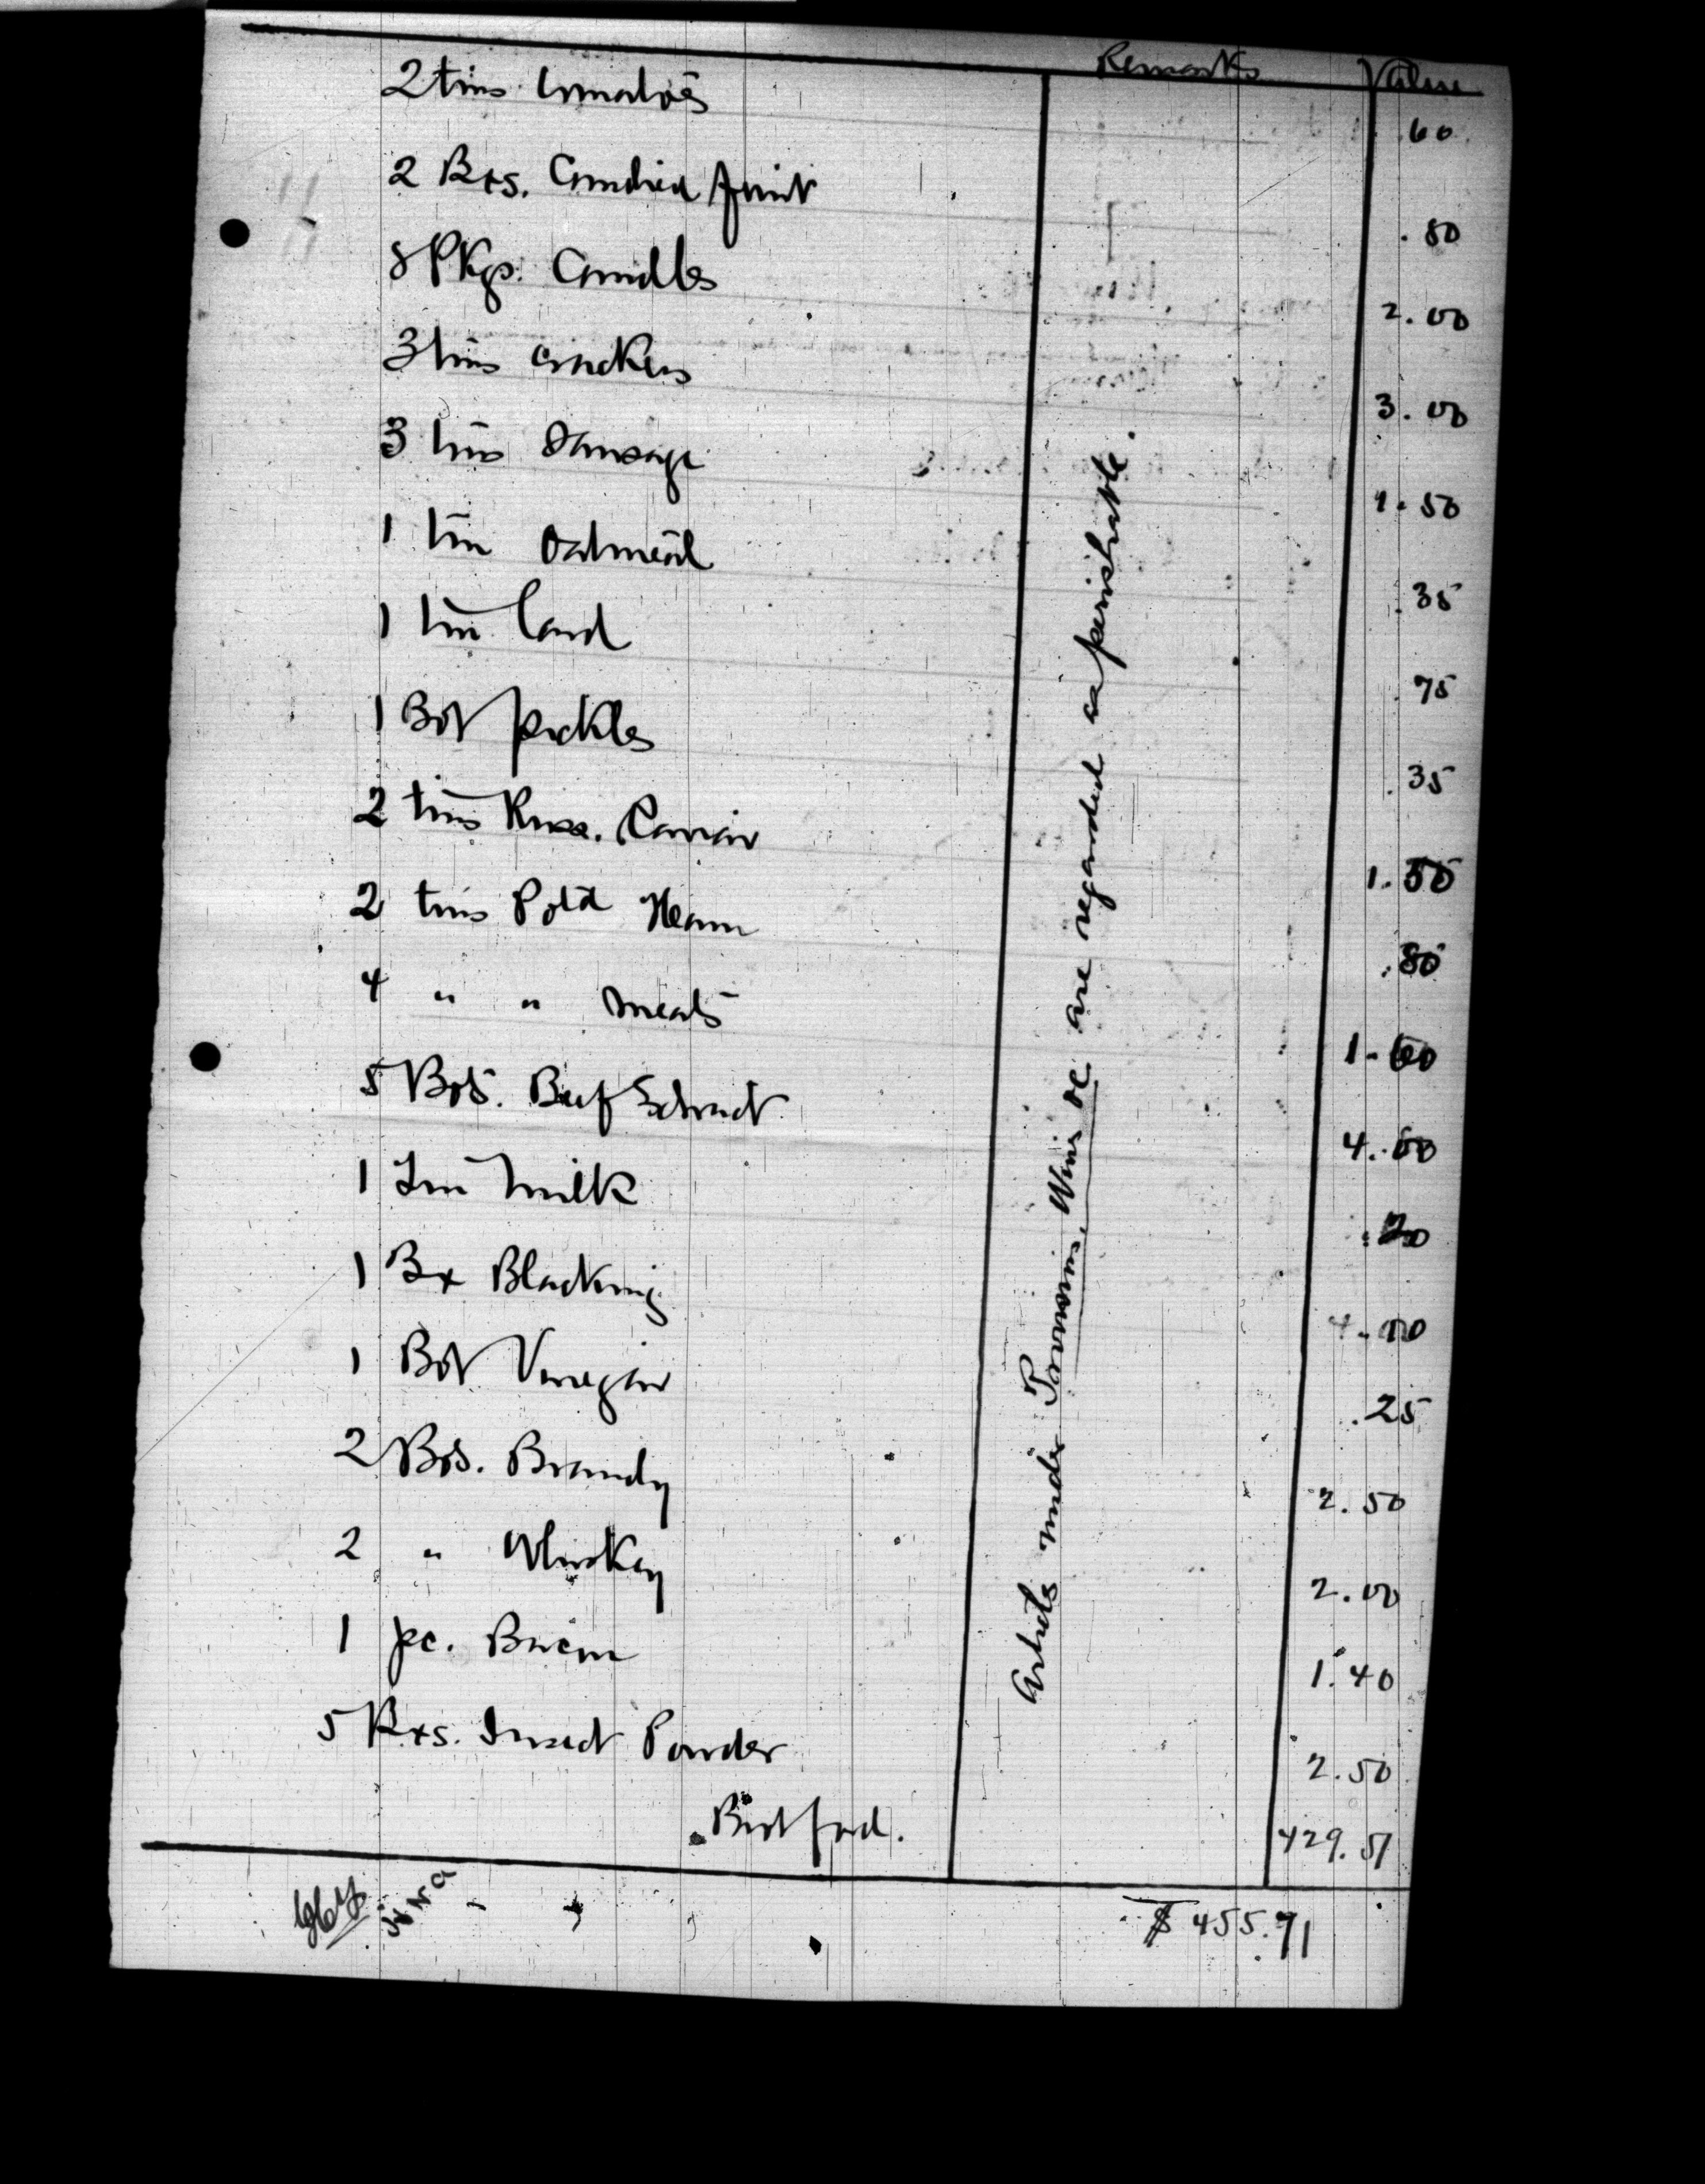 Remarks Value
2 tins tomatoes .60
2 Bxs. Candied fruit .80
8 Pkgs. Candles 2.00
3 tins crackers 3.00
3 tins Sausage 1.50
1 tin Oatmeal .35
1 tin Lard .75
1 Bot pickles .35
2 tins Russ. Caviar 1.50
2 tins Pot'd Ham .80
4 " " meats 1.60
5 Bots. Beef Extract 4.00
1 Tin Milk .20
1 Bx Blacking
1 Bot Vinegar .25
2 Bots. Brandy 2.50
2 " Whiskey 2.00
1 pc. Bacon 1.40
5 Bxs. Insect Powder 2.50
Brot ford. 429.51
$ 455.71
Articles under Provisions, Wines &c are regarded as perishable.